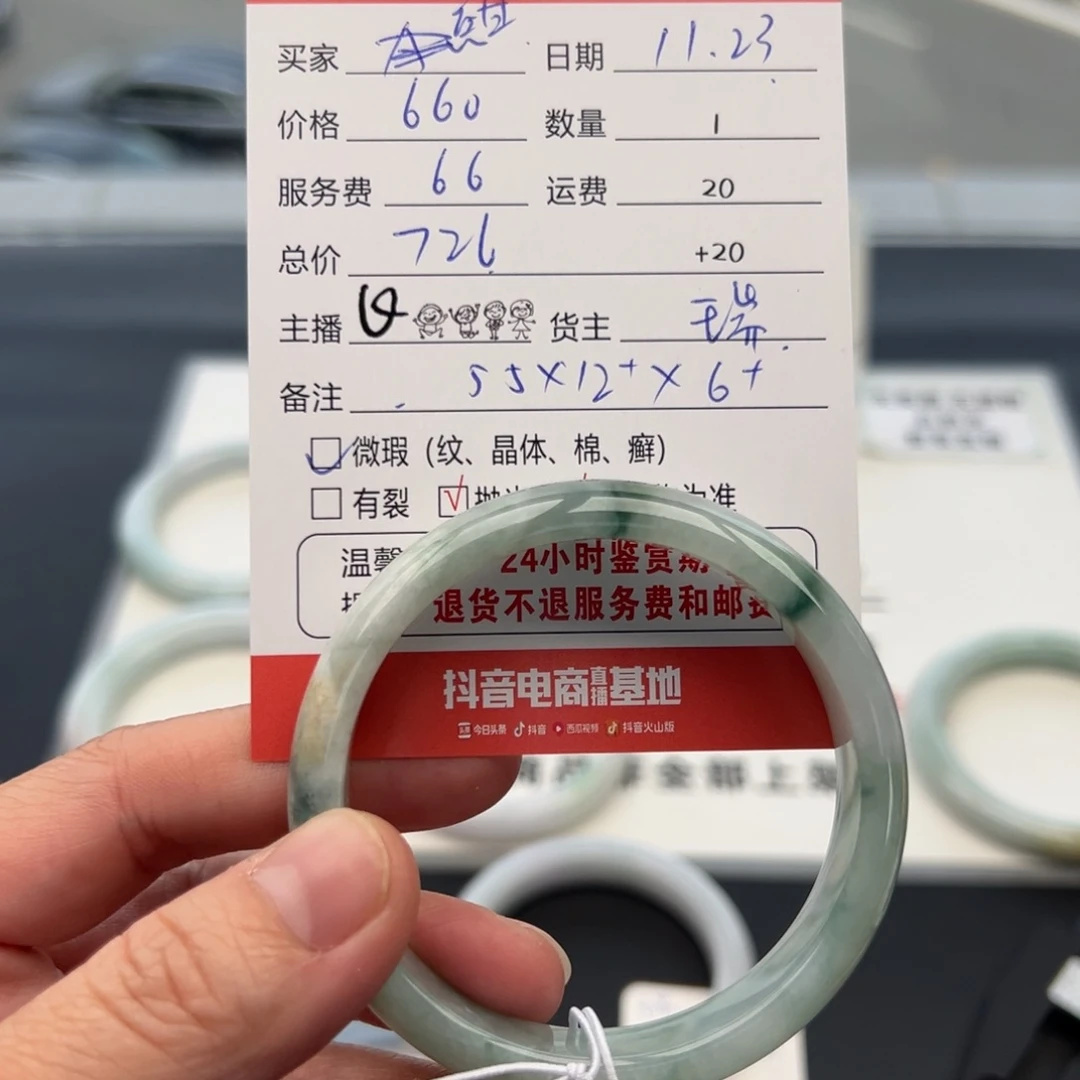 买家 日期 11.23
价格 660 数量 1
服务费 66 运费 20
总价 726 +20
主播 货主 瑞
备注 55×12+×6+
微瑕（纹、晶体、棉、癣）
有裂 √ 抛 为准
温馨 24小时鉴赏期
退货不退服务费和邮费
抖音电商直播基地
今日头条 抖音 西瓜视频 抖音火山版